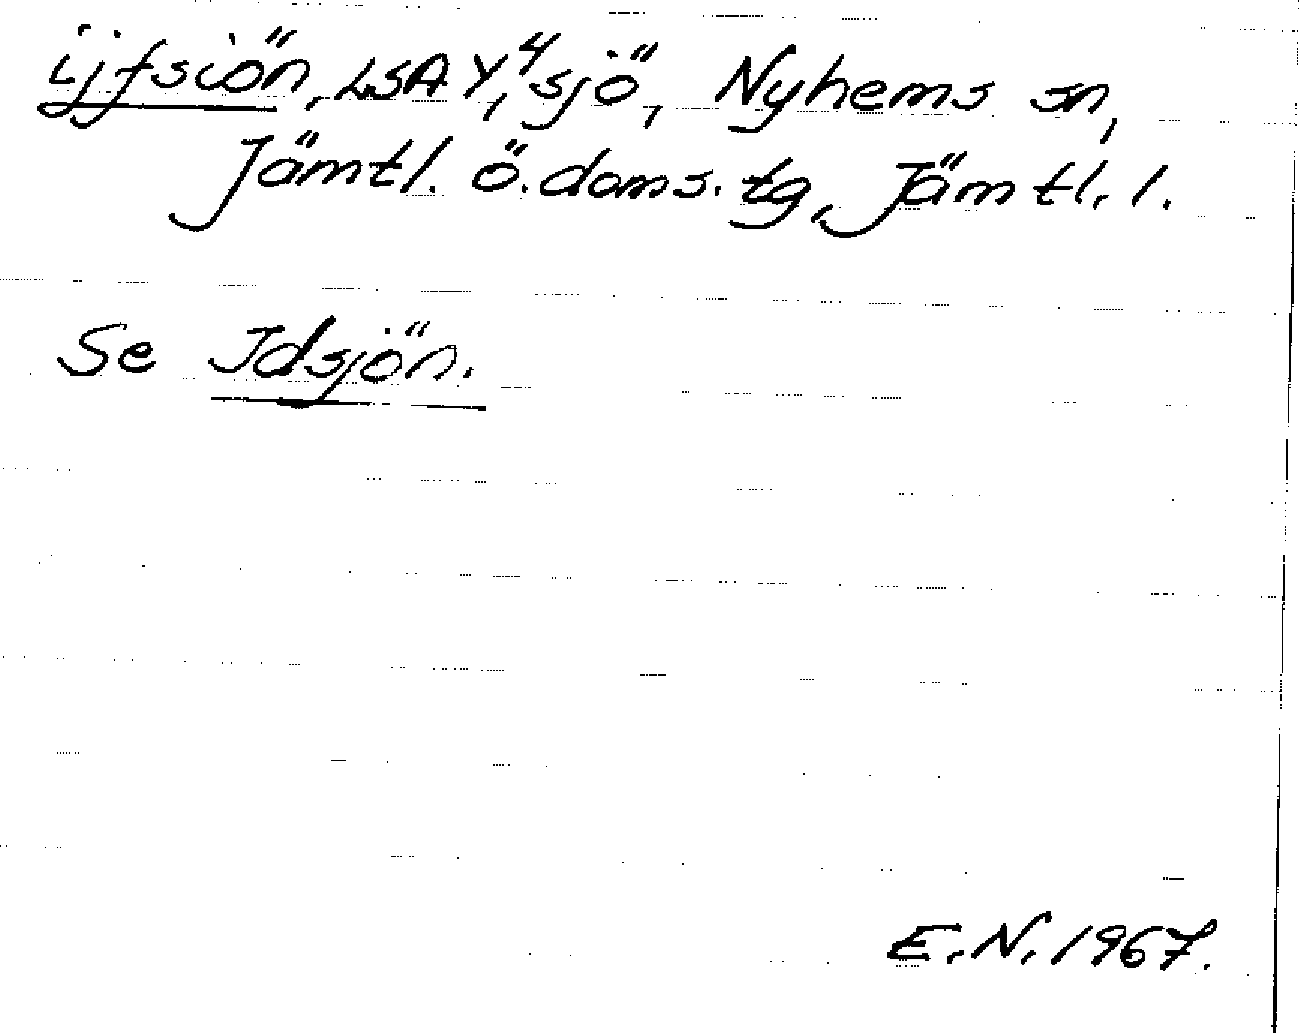 ijfsiön, LSA Y,⁴ sjö, Nyhems sn,
Jämtl. ö. doms. tg, Jämtl. l.
Se Idsjön.
E.N. 1967.